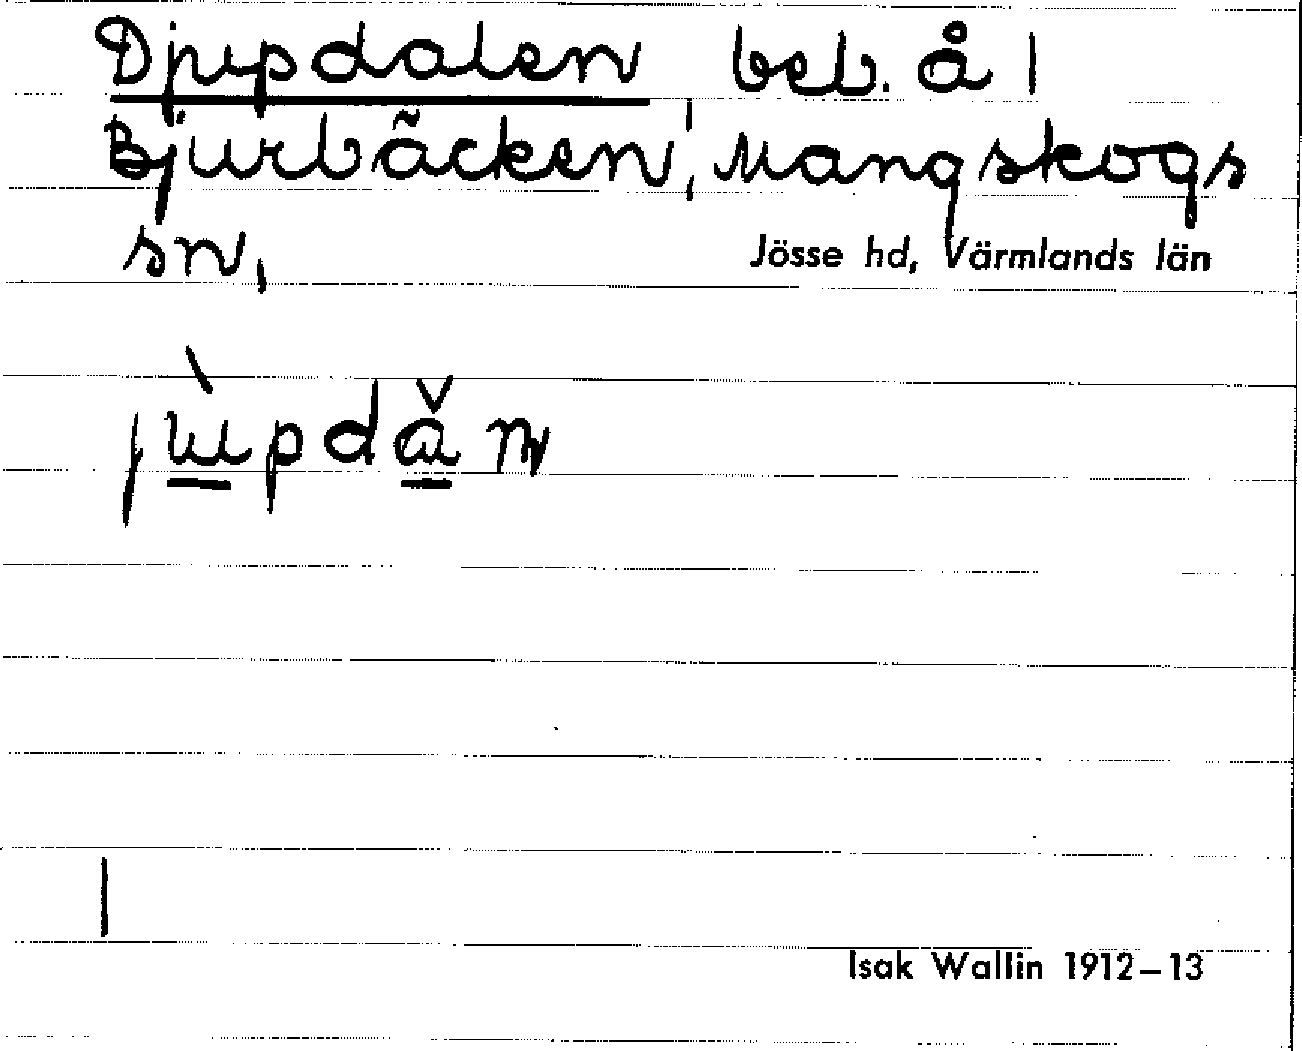 Djupdalen beb. å 1
Bjurbäcken, Mangskogs
sn,
Jösse hd, Värmlands län
Isak Wallin 1912–13